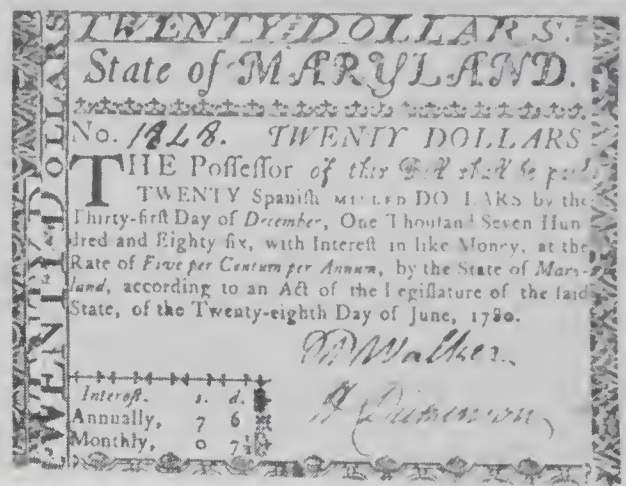 TWENTY DOLLARS.
State of MARYLAND.
TWENTY DOLLARS
No. 1848. TWENTY DOLLARS
THE Poſſeſſor of this Bill ſhall be paid
TWENTY Spaniſh MILLED DOLLARS by the
Thirty-firſt Day of December, One Thouſand Seven Hun
dred and Eighty ſix, with Intereſt in like Money, at the
Rate of Five per Centum per Annum, by the State of Mary-
land, according to an Act of the Legiſlature of the ſaid
State, of the Twenty-eighth Day of June, 1780.
Walker.
Dickenson
Intereſt. s. d.
Annually, 7 6
Monthly, 0 7½